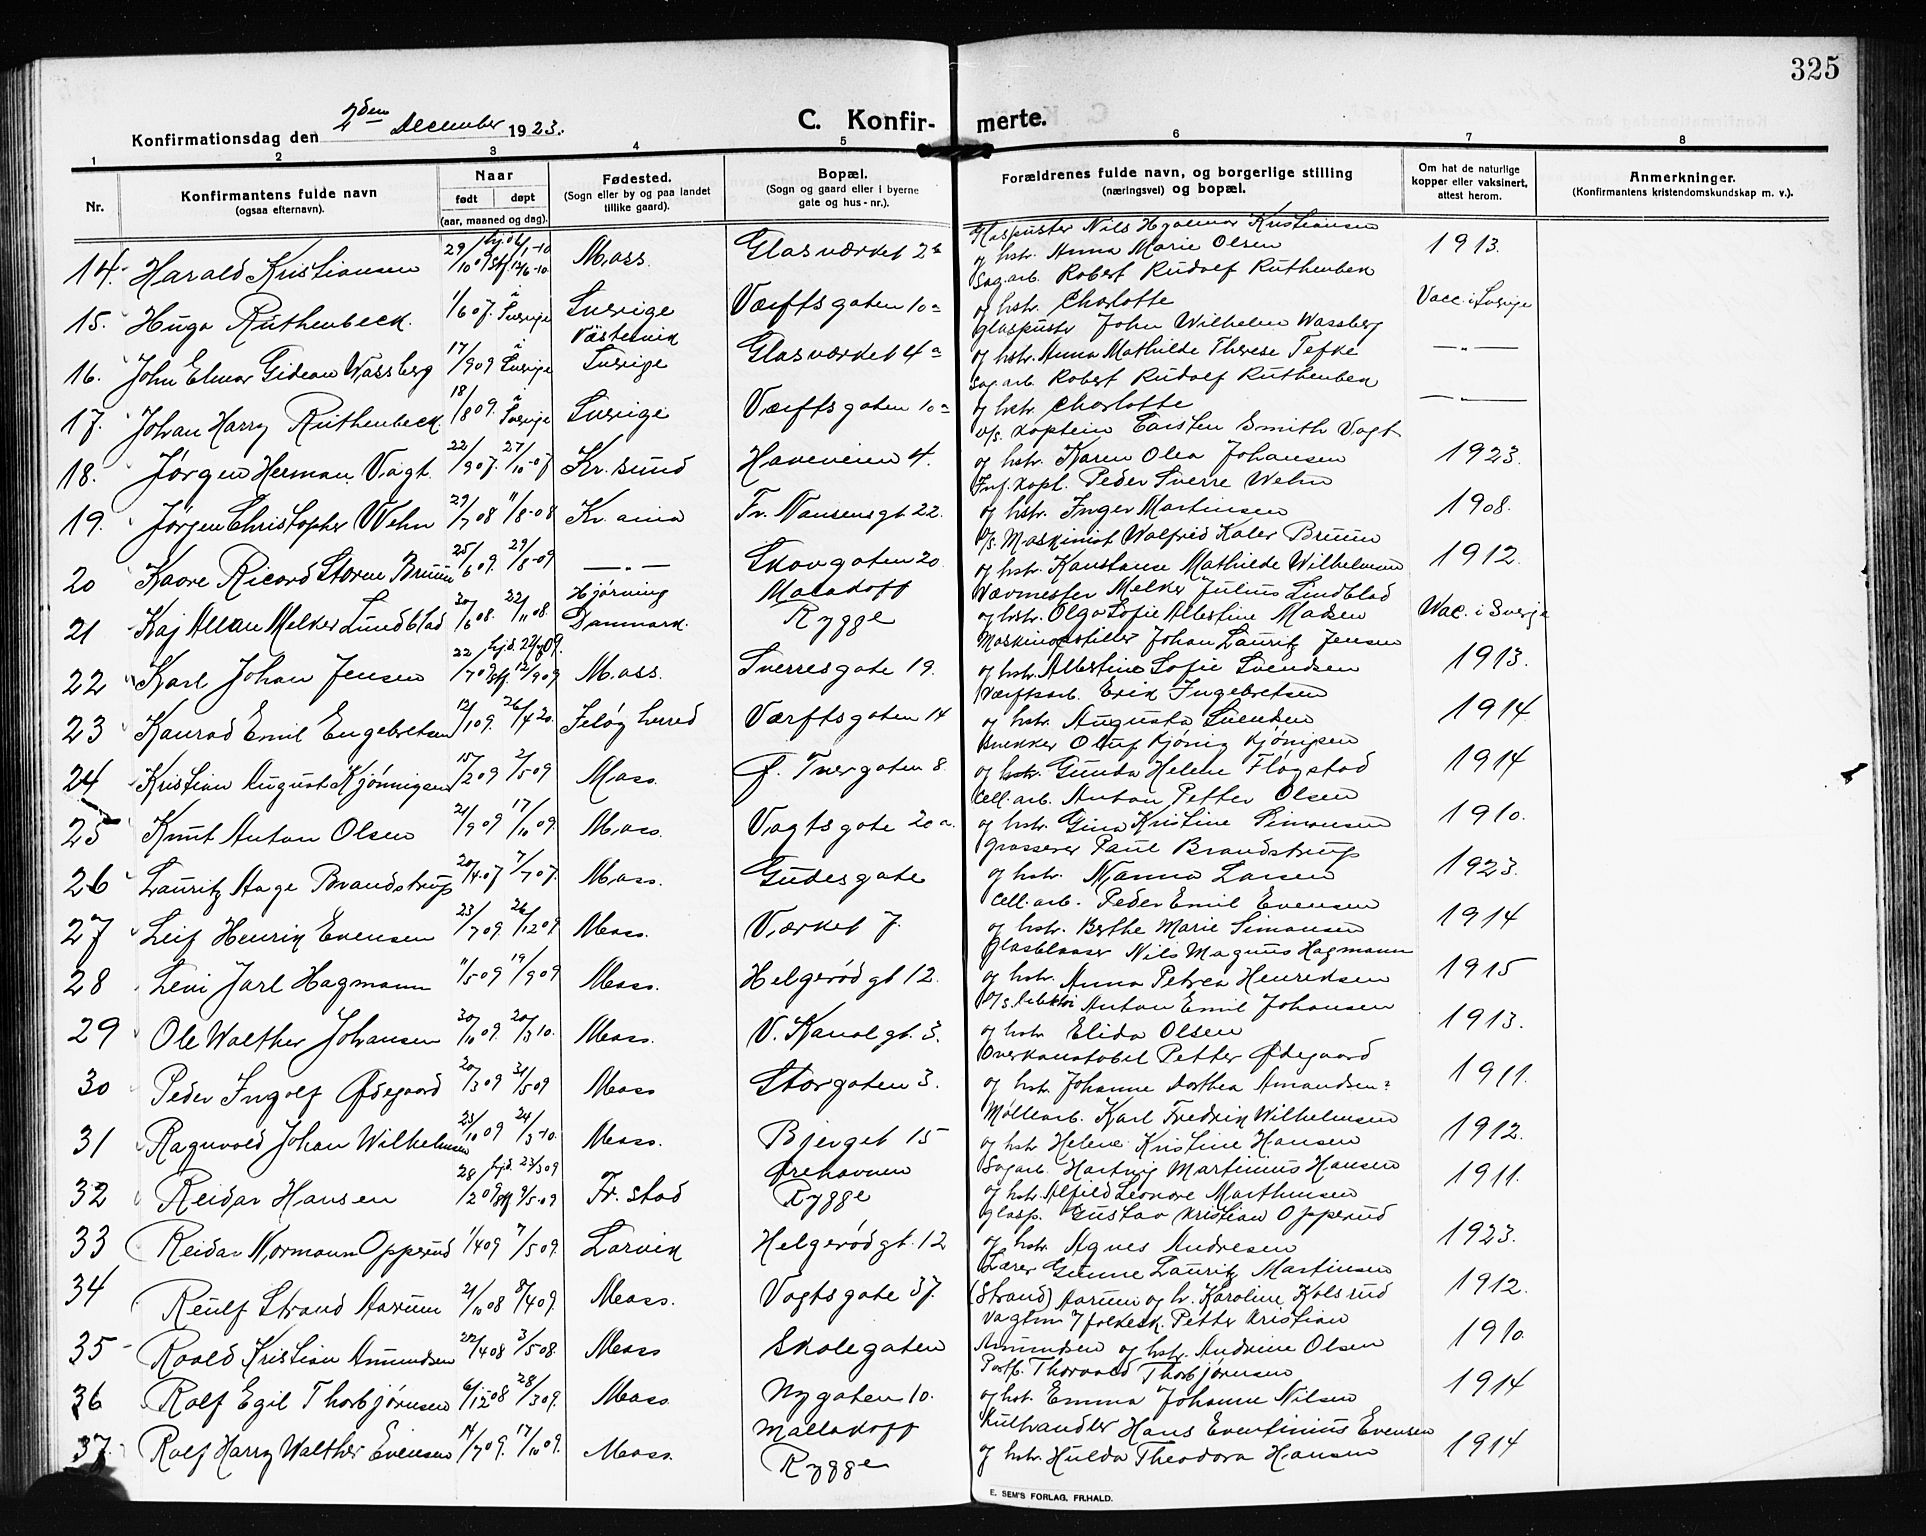 325
Konfirmationsdag den 2den December 1923.
C. Konfirmerte.
1 2 3 4 5 6 7 8
Nr.
Konfirmantens fulde navn
(ogsaa efternavn).
Naar
født døpt
(aar, maaned og dag).
Fødested.
(Sogn eller by og paa landet
tillike gaard).
Bopæl.
(Sogn og gaard eller i byerne
gate og hus-nr.).
Forældrenes fulde navn, og borgerlige stilling
(næringsvei) og bopæl.
Om hat de naturlige
kopper eller vaksinert,
attest herom.
Anmerkninger.
(Konfirmantens kristendomskundskap m. v.).
Glaspuster Nils Hjalmar Kristiansen
14. Harald Kristiansen 29/10 09 hjd 6/1-10 stf. 12/6-10 Moss. Glasværket 2b og hstr. Anna Marie Olsen 1913.
Sagarb. Robert Rudolf Ruthenbeck
15. Hugo Ruthenbeck. 1/6 07. i Sverige Sverige Værftsgaten 10a og hstr. Charlotte Vacc. i Sverige
Västervik
Glaspuster John Wilhelm Wassberg
16. John Elmar Gideon Wassberg 17/9 09 i Sverige Sverige Glasværket 4a og hstr. Anna Mathilde Therese Tefke —"—
Sagarb. Robert Rudolf Ruthenbeck
17. Johan Harry Ruthenbeck. 18/8 09. i Sverige Sverige Værftsgaten 10a og hstr. Charlotte —"—
D/s. Kaptein Carsten Smith Vogt
18. Jørgen Herman Vogt. 22/9 07. 27/10-07 Kr.sund Haveveien 4. og hstr. Karen Olea Johansen 1923.
Inf. kapt. Peder Sverre Wehn
19. Jørgen Christopher Wehn 29/7 08 11/8-08 Kr.ania Fr. Nansensgt. 22. og hstr. Inger Martinsen 1908.
D/s. Maskinist Walfrid Kaler Bruun
20 Kaare Ricard Storm Bruun 25/6 09. 29/8-09 —"— Skovgaten 20. og hstr. Konstanse Mathilde Wilhelmsen 1912.
Hjørring Malakoff
Vævmester Melker Julius Lindblad
21 Kaj Allan Melker Lundblad 30/6 08. 22/11 08 Danmark. Rygge og hstr. Olga Sofie Albertine Madsen Vac. i Sverige
Maskinopstiller Johan Lauritz Jensen
22 Karl Johan Jensen 22/7 09 hjd. 29/7 09. stf 12/9 09 Moss. Sverresgate 19. og hstr. Albertine Sofie Svendsen 1913.
Værftsarb. Erik Ingebretsen
23 Konrad Emil Engebretsen 12/1 09. 26/4 20. Jeløy herred Værftsgaten 14 og hstr. Augusta Svendsen 1914
Snekker Oluf Kjönig Kjönigsen
24 Kristian August Kjönnigsen 15/2 09 2/5 09 Moss. Ø. Tvergaten 8. og hstr. Gunda Helene Flögstad 1914
Cell. arb. Anton Petter Olsen
25 Knut Anton Olsen 21/9 09 17/10 09. Moss. Vogtsgate 20a. og hstr. Gina Kristine Simonsen 1910.
Grosserer Paul Brandstrup
26 Lauritz Aage Brandstrup 20/4 07 7/7 07. Moss. Gudesgate og hstr. Nanna Larsen 1923.
Cell. arb. Peder Emil Evensen
27 Leif Henrik Evensen 23/7 09. 26/12 09 Moss. Værket 7. og hstr. Berthe Marie Simonsen 1914
Glasblaaser Nils Magnus Hagmann
28 Levi Jarl Hagmann 11/5 09 19/9 09 Moss. Helgerødgt 12. og hstr. Anna Petrea Henriksen 1915
Anton Emil Johansen
29 Ole Walther Johansen 30/10 09. 20/3 10. Moss. V. Kanalgt. 3. og hstr Elida Olsen 1913.
Overkonstabel Petter Ødegaard
30 Peder Ingolf Ødegaard 20/3 09 31/5 09 Moss Storgaten 3. og hstr. Johanne Dorthea Amundsen 1911.
Møllearb. Karl Fredrik Wilhelmsen
31 Ragnvald Johan Wilhelmsen 23/10 09 24/3-10. Moss. Bjerget 15 og hstr Helene Kristine Hansen 1912.
Ørehavnen
Sagarb. Hartvig Martinius Hansen
32 Reidar Hansen 28/2 09 hjd. 23/3 09 stf 9/5-09 Fr.stad Rygge og hstr. Alfild Leonore Marthinsen 1911.
Glasp. Gustav Kristian Opperud
33 Reidar Normann Opperud 1/4 09 7/5 09. Larvik Helgerødgt. 12 og hstr. Agnes Andresen 1923.
Lærer Gunne Lauritz Martinsen
34 Reulf Strand Aarum 21/10 08 8/4 09. Moss. Vogtsgate 37. (Strand) Aarum og h. Karoline Kolsrud 1912.
Petter Kristian
35 Roald Kristian Amundsen 22/4 08 3/5 08. Moss Skolegaten Amundsen og hstr. Andrine Olsen 1910.
Postb. Thorvald Thorbjørnsen
36 Rolf Egil Thorbjørnsen 6/12 08 28/3 09. Moss. Nygaten 10. og hst. Emma Johanne Nilsen 1914
Mallakoff
Kulhandler Hans Eventinius Evensen
37 Rolf Harry Walther Evensen 14/7 09. 17/10 09. Moss. Rygge og hstr. Hulda Theodora Hansen 1914
E. SEM'S FORLAG, FR.HALD.